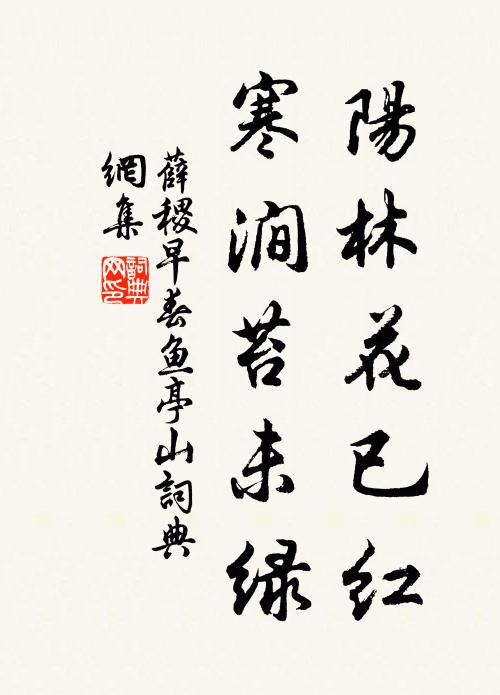 陽林花已紅
寒澗苔未緑
薛稷早春魚亭山詞典
網集
詞典網印